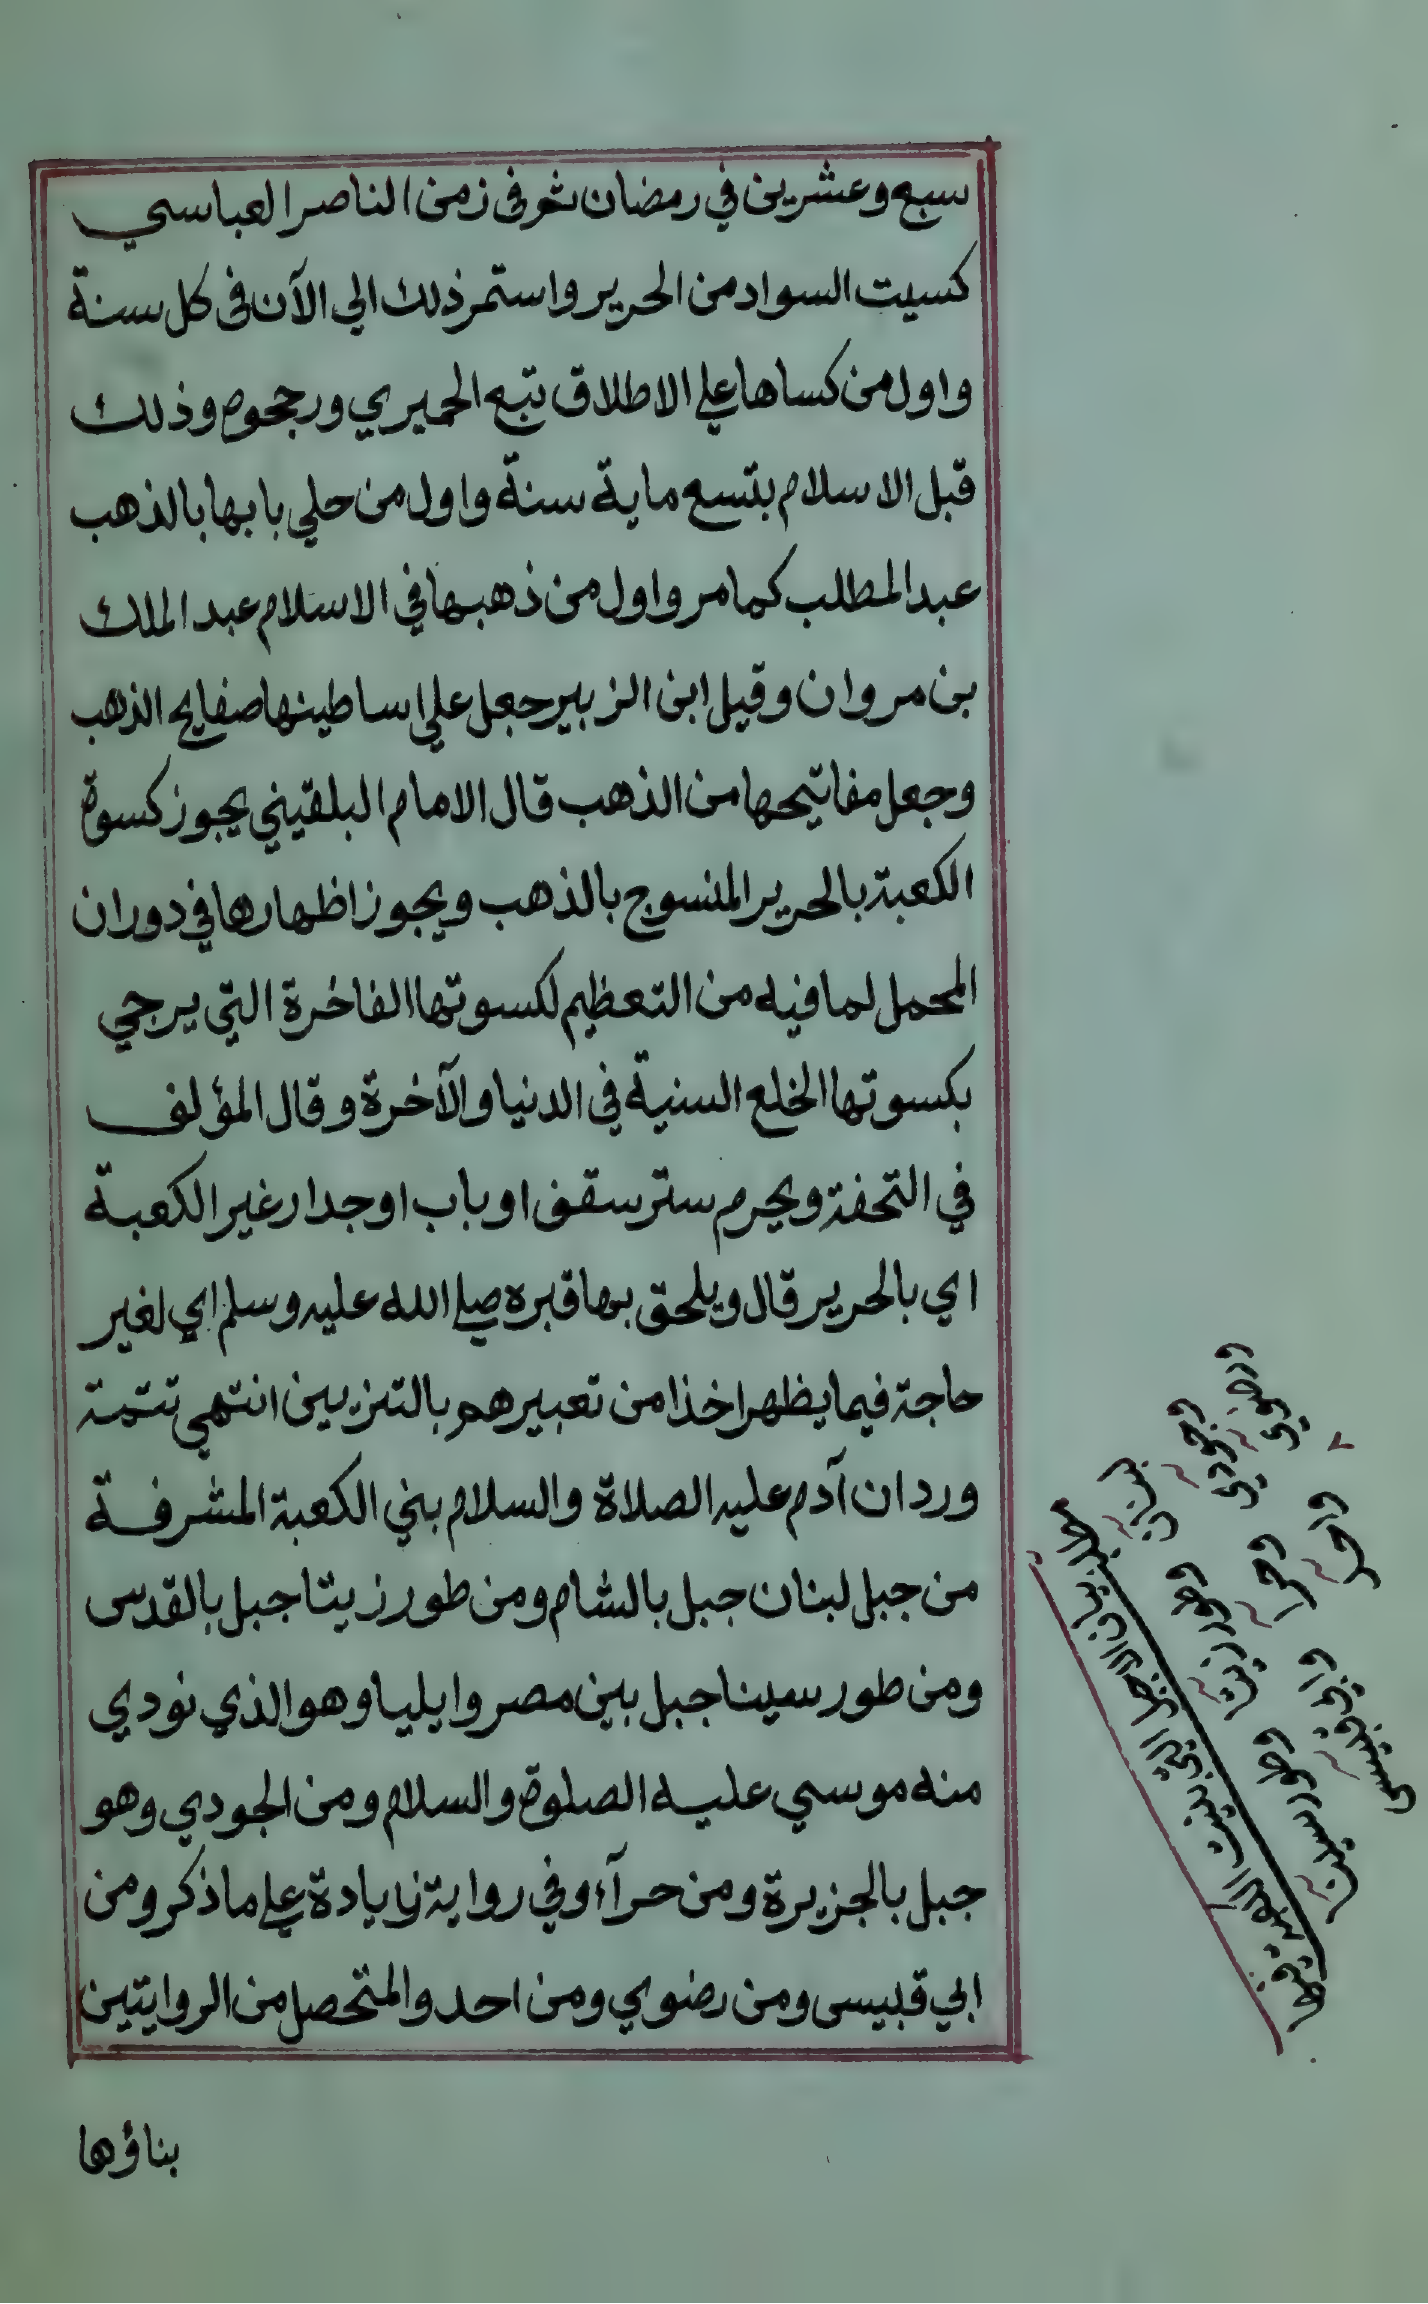 سبع وعشرين في رمضان ثم في زمن الناصر العباسي
كسيت السواد من الحرير واستمر ذلك الي الآن في كل سنة
واول من كساها علي الاطلاق تبع الحميري ورجحوه وذلك
قبل الاسلام بتسع ماية سنة واول من حلي بابها بالذهب
عبد المطلب كما مر واول من ذهبها في الاسلام عبد الملك
بن مروان وقيل ابن الزبير جعل علي اساطينها صفايح الذهب
وجعل مفاتيحها من الذهب قال الامام البلقيني يجوز كسوة
الكعبة بالحرير المنسوج بالذهب ويجوز اظهارها في دوران
المحمل لما فيه من التعظيم لكسوتها الفاخرة التي يرجي
بكسوتها الخلع السنية في الدنيا والآخرة وقال المؤلف
في التحفة ويحرم ستر سقف او باب او جدار غير الكعبة
اي بالحرير قال ويلحق بها قبره صلي الله عليه وسلم اي لغير
حاجة فيما يظهر اخذا من تعبيرهم بالتزيين انتهي تتمة
ورد ان آدم عليه الصلاة والسلام بني الكعبة المشرفة
من جبل لبنان جبل بالشام ومن طور زيتا جبل بالقدس
ومن طور سينا جبل بين مصر وايليا وهو الذي نودي
منه موسي عليه الصلوة والسلام ومن الجودي وهو
جبل بالجزيرة ومن حرآء وفي رواية زيادة علي ما ذكر ومن
ابي قبيس ومن رضوي ومن احد والمتحصل من الروايتين
بناؤها
مطلب بيان الاجبل التي بنيت الكعبة منها
لبنان
وطور زيت
وطور سينا
وجودي
وحرا
وابي قبيس
ورضوي
واحد